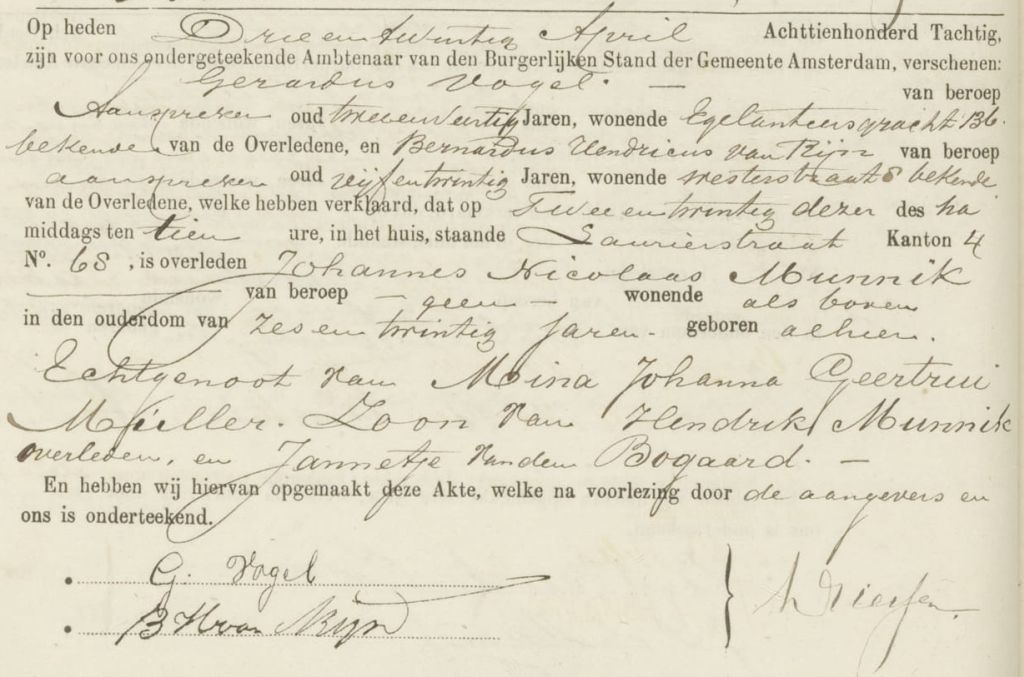 Op heden Drie en twintig April Achttienhonderd Tachtig,
zijn voor ons ondergeteekende Ambtenaar van den Burgerlijken Stand der Gemeente Amsterdam, verschenen:
Gerardus Vogel. — van beroep
Aanspreker oud tweeenveertig Jaren, wonende Egelantiersgracht 136.
bekende van de Overledene, en Bernardus Hendricus van Rijn van beroep
aanspreker oud vijfentwintig Jaren, wonende Westerstraat 8 bekende
van de Overledene, welke hebben verklaard, dat op Twee en twintig dezer des na
middags ten tien ure, in het huis, staande Laurierstraat Kanton 4
No. 68, is overleden Johannes Nicolaas Munnik
— van beroep — geen — wonende als boven
in den ouderdom van zes en twintig Jaren. geboren alhier.
Echtgenoot van Meina Johanna Geertrui
Müller. Zoon van Hendrik Munnik
overleden, en Jannetje van den Bogaard. —
En hebben wij hiervan opgemaakt deze Akte, welke na voorlezing door de aangevers en
ons is onderteekend.
G. Vogel
B H van Rijn